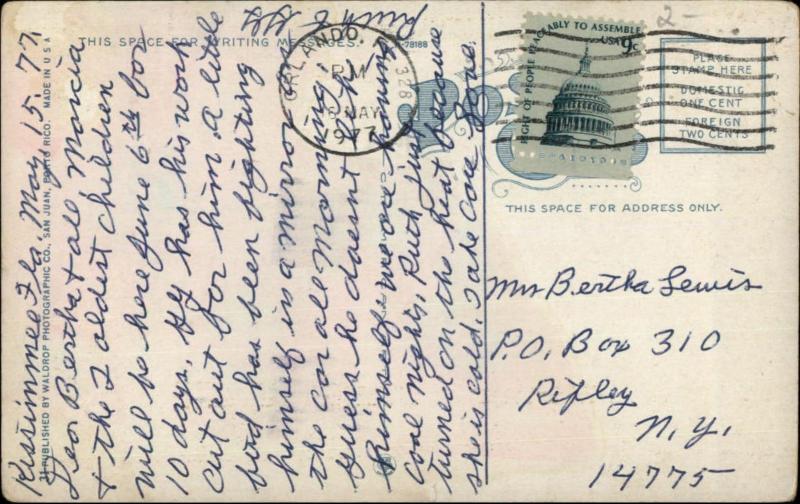 Kissimmee Fla. May 15. 77.
Dear Bertha & all Marcia
& the 2 oldest children
will be here June 6th for
10 days, Sy has his work
cut out for him. A little
bird has been fighting
himself in a mirror on
the car all morning I
guess he doesn't
himself. We are having
cool nights. Ruth just
turned on the heat because
she is cold. Take care. Love.
Ruth & Sy
THIS SPACE FOR WRITING MESSAGES.
78188
PUBLISHED BY WALDROP PHOTOGRAPHIC CO., SAN JUAN, PUERTO RICO. MADE IN U S A
ORLANDO,
PM
MAY
1977
328
RIGHT OF PEOPLE PEACEABLY TO ASSEMBLE
USA 9c
2-
PLACE
STAMP HERE
DOMESTIC
ONE CENT
FOREIGN
TWO CENTS
THIS SPACE FOR ADDRESS ONLY.
Mrs Bertha Lewis
P.O. Box 310
Ripley
N.Y.
14775